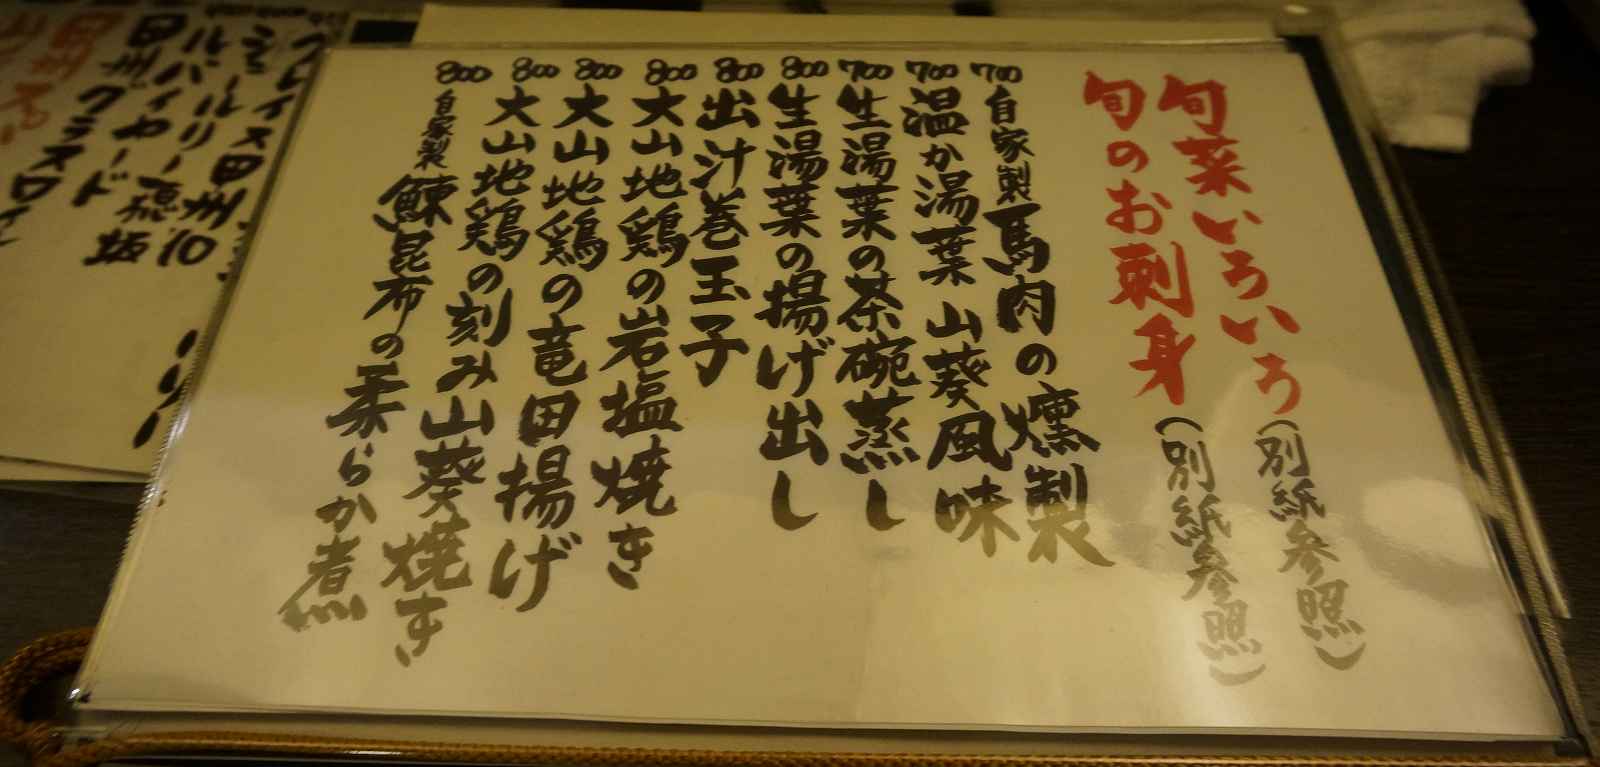 旬菜いろいろ(別紙参照)
旬のお刺身(別紙参照)
700 自家製馬肉の燻製
700 温か湯葉 山葵風味
700 生湯葉の茶碗蒸し
800 生湯葉の揚げ出し
800 出汁巻玉子
800 大山地鶏の岩塩焼き
800 大山地鶏の竜田揚げ
800 大山地鶏の刻み山葵焼き
800 自家製鰊昆布の柔らか煮
グレイス甲州